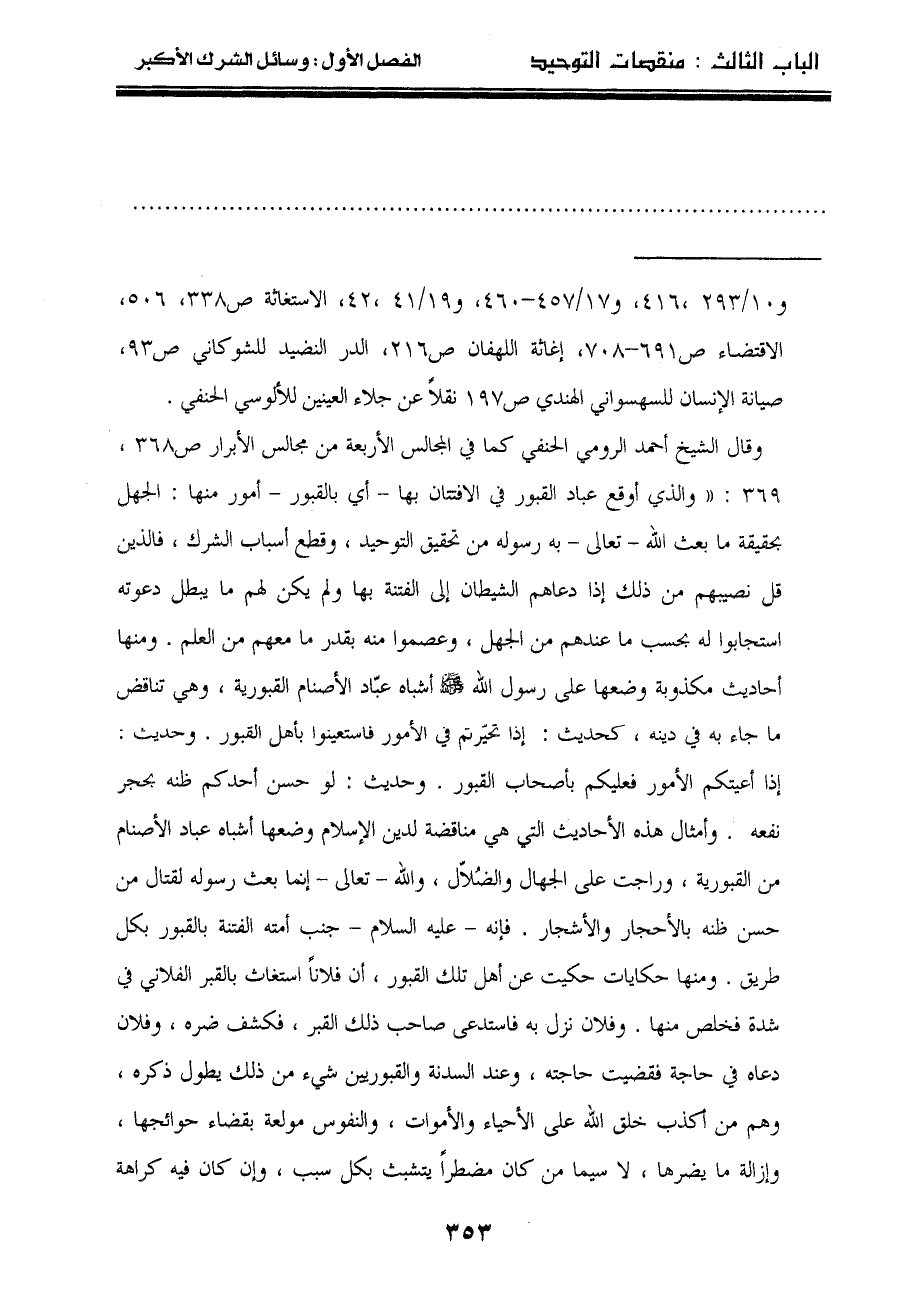 الباب الثالث : منقصات التوحيد الفصل الأول : وسائل الشرك الأكبر
................................................................................
و٢٩٣/١٠ ،٤١٦، و٤٥٧/١٧-٤٦٠، و٤١/١٩ ،٤٢، الاستغاثة ص٣٣٨، ٥٠٦،
الاقتضاء ص٦٩١-٧٠٨، إغاثة اللهفان ص٢١٦، الدر النضيد للشوكاني ص٩٣،
صيانة الإنسان للسهسواني الهندي ص١٩٧ نقلاً عن جلاء العينين للألوسي الحنفي .
وقال الشيخ أحمد الرومي الحنفي كما في المجالس الأربعة من مجالس الأبرار ص٣٦٨ ،
٣٦٩ : « والذي أوقع عباد القبور في الافتتان بها - أي بالقبور - أمور منها : الجهل
بحقيقة ما بعث الله - تعالى - به رسوله من تحقيق التوحيد ، وقطع أسباب الشرك ، فالذين
قل نصيبهم من ذلك إذا دعاهم الشيطان إلى الفتنة بها ولم يكن لهم ما يبطل دعوته
استجابوا له بحسب ما عندهم من الجهل ، وعصموا منه بقدر ما معهم من العلم . ومنها
أحاديث مكذوبة وضعها على رسول الله ﷺ أشباه عبّاد الأصنام القبورية ، وهي تناقض
ما جاء به في دينه ، كحديث : إذا تحيّرتم في الأمور فاستعينوا بأهل القبور . وحديث :
إذا أعيتكم الأمور فعليكم بأصحاب القبور . وحديث : لو حسن أحدكم ظنه بحجر
نفعه . وأمثال هذه الأحاديث التي هي مناقضة لدين الإسلام وضعها أشباه عباد الأصنام
من القبورية ، وراجت على الجهال والضُلاّل ، والله - تعالى - إنما بعث رسوله لقتال من
حسن ظنه بالأحجار والأشجار . فإنه - عليه السلام - جنب أمته الفتنة بالقبور بكل
طريق . ومنها حكايات حكيت عن أهل تلك القبور ، أن فلاناً استغاث بالقبر الفلاني في
شدة فخلص منها . وفلان نزل به فاستدعى صاحب ذلك القبر ، فكشف ضره ، وفلان
دعاه في حاجة فقضيت حاجته ، وعند السدنة والقبوريين شيء من ذلك يطول ذكره ،
وهم من أكذب خلق الله على الأحياء والأموات ، والنفوس مولعة بقضاء حوائجها ،
وإزالة ما يضرها ، لا سيما من كان مضطراً يتشبث بكل سبب ، وإن كان فيه كراهة
٣٥٣